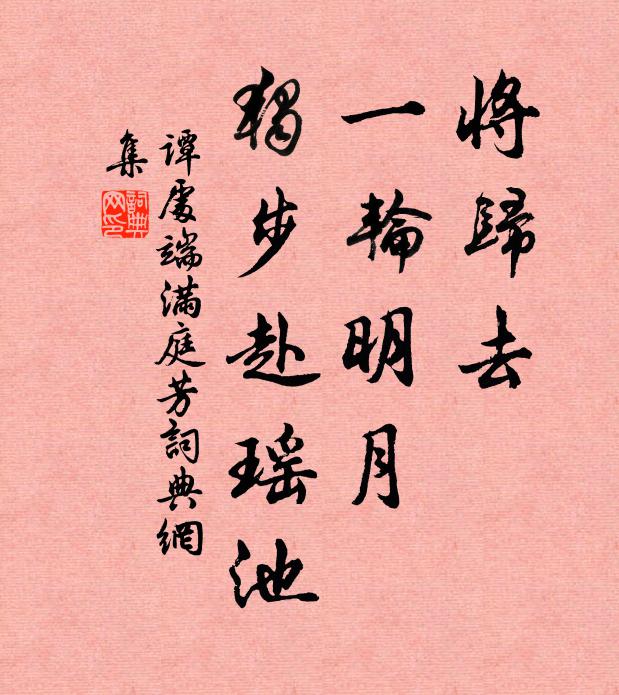 將歸去
一輪明月
獨步赴瑶池
譚處端滿庭芳詞典網
集
詞典网印